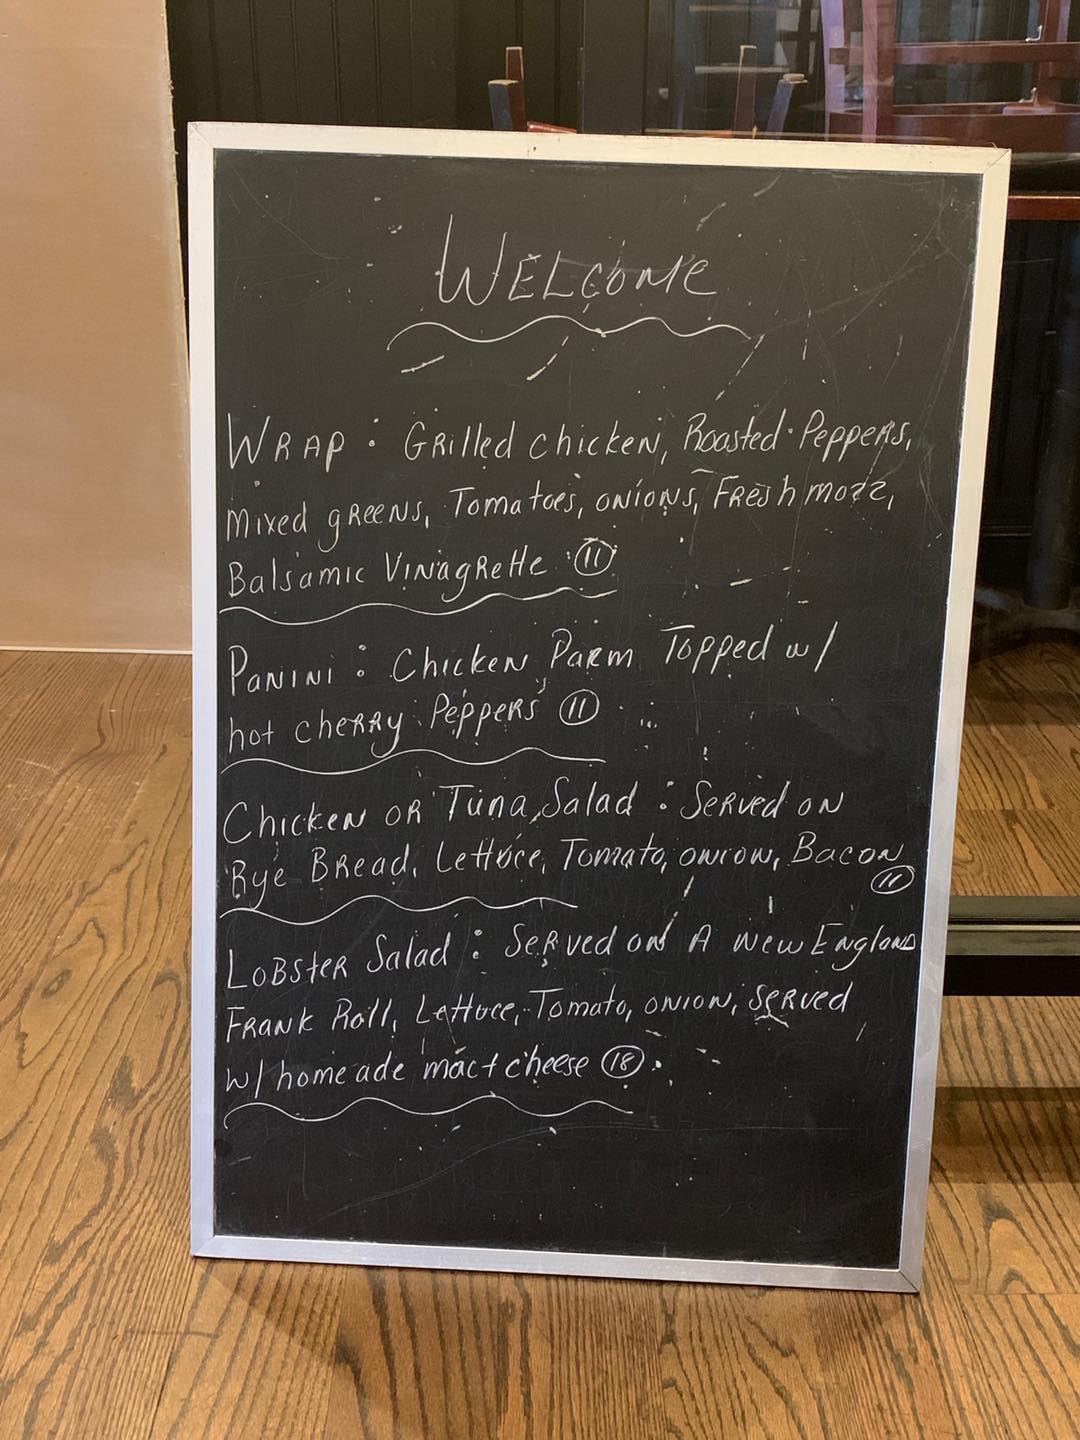 WELCOME
WRAP: GRilled chicken, Roasted Peppers,
mixed gREENS, Tomatoes, onions, FResh mozz,
Balsamic VINAgRette 11
PANINI: Chicken Parm Topped w/
hot cheRRy Peppers 11
Chicken OR Tuna Salad: Served on
Rye BRead, Lettuce, Tomato, onion, Bacon
11
LOBSteR Salad: SeRved on A New England
FRANK Roll, Lettuce, Tomato, onion, seRved
w/ homeade mac + cheese 18